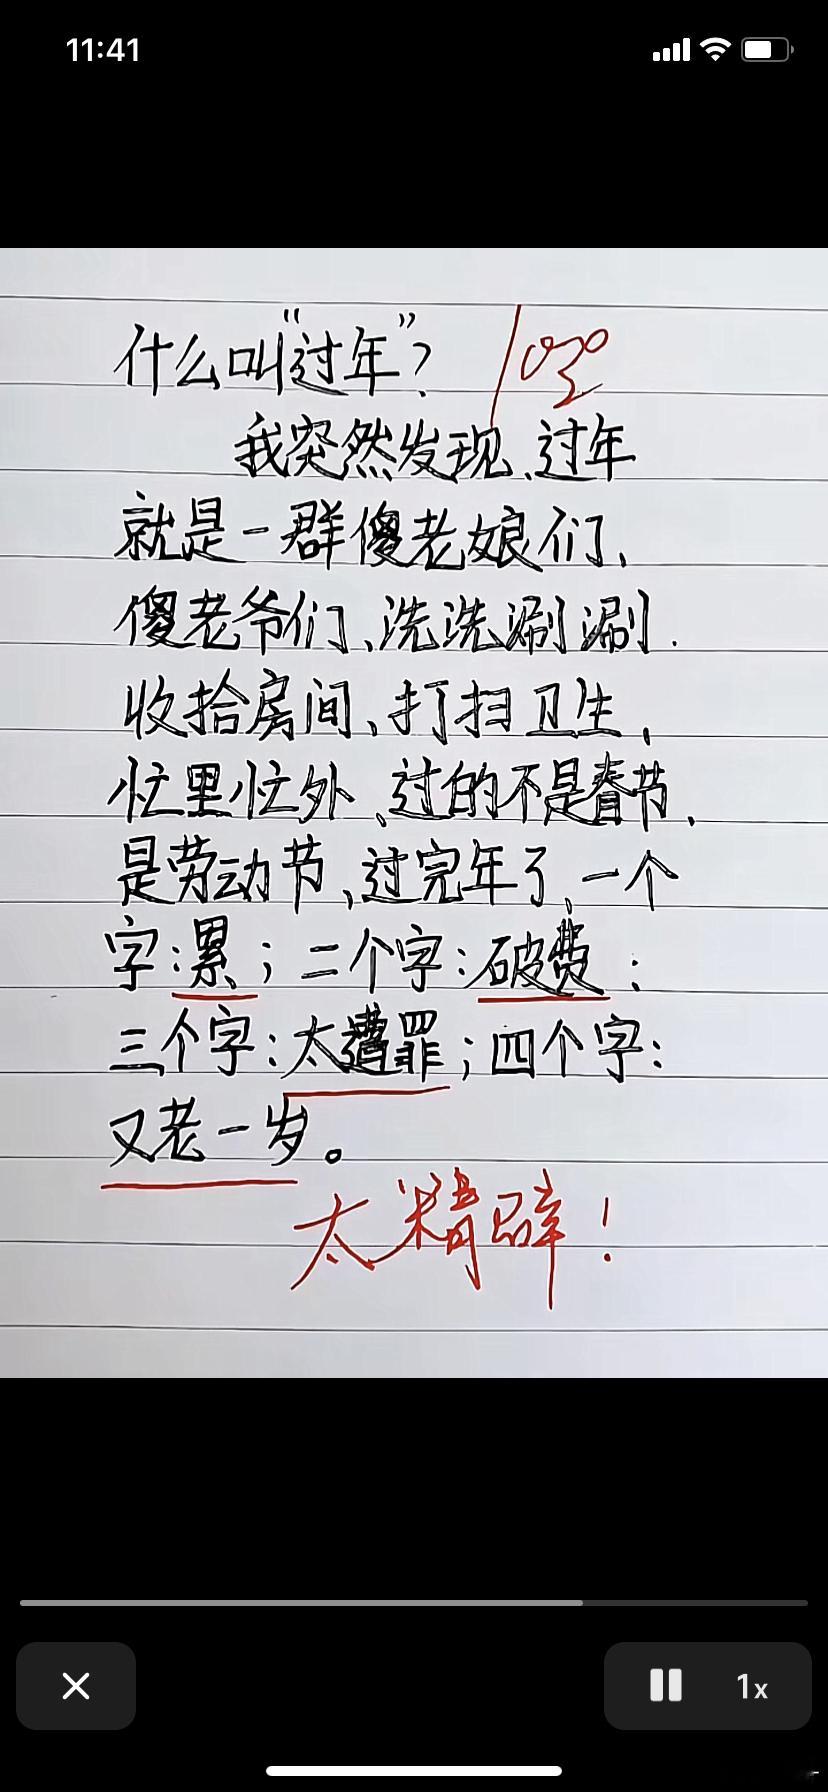 11:41
什么叫"过年"? 100
我突然发现、过年
就是一群傻老娘们、
傻老爷们、洗洗涮涮.
收拾房间、打扫卫生、
忙里忙外、过的不是春节、
是劳动节、过完年了、一个
字:累；二个字:破费；
三个字:太遭罪；四个字:
又老一岁。
太精辟!
1x